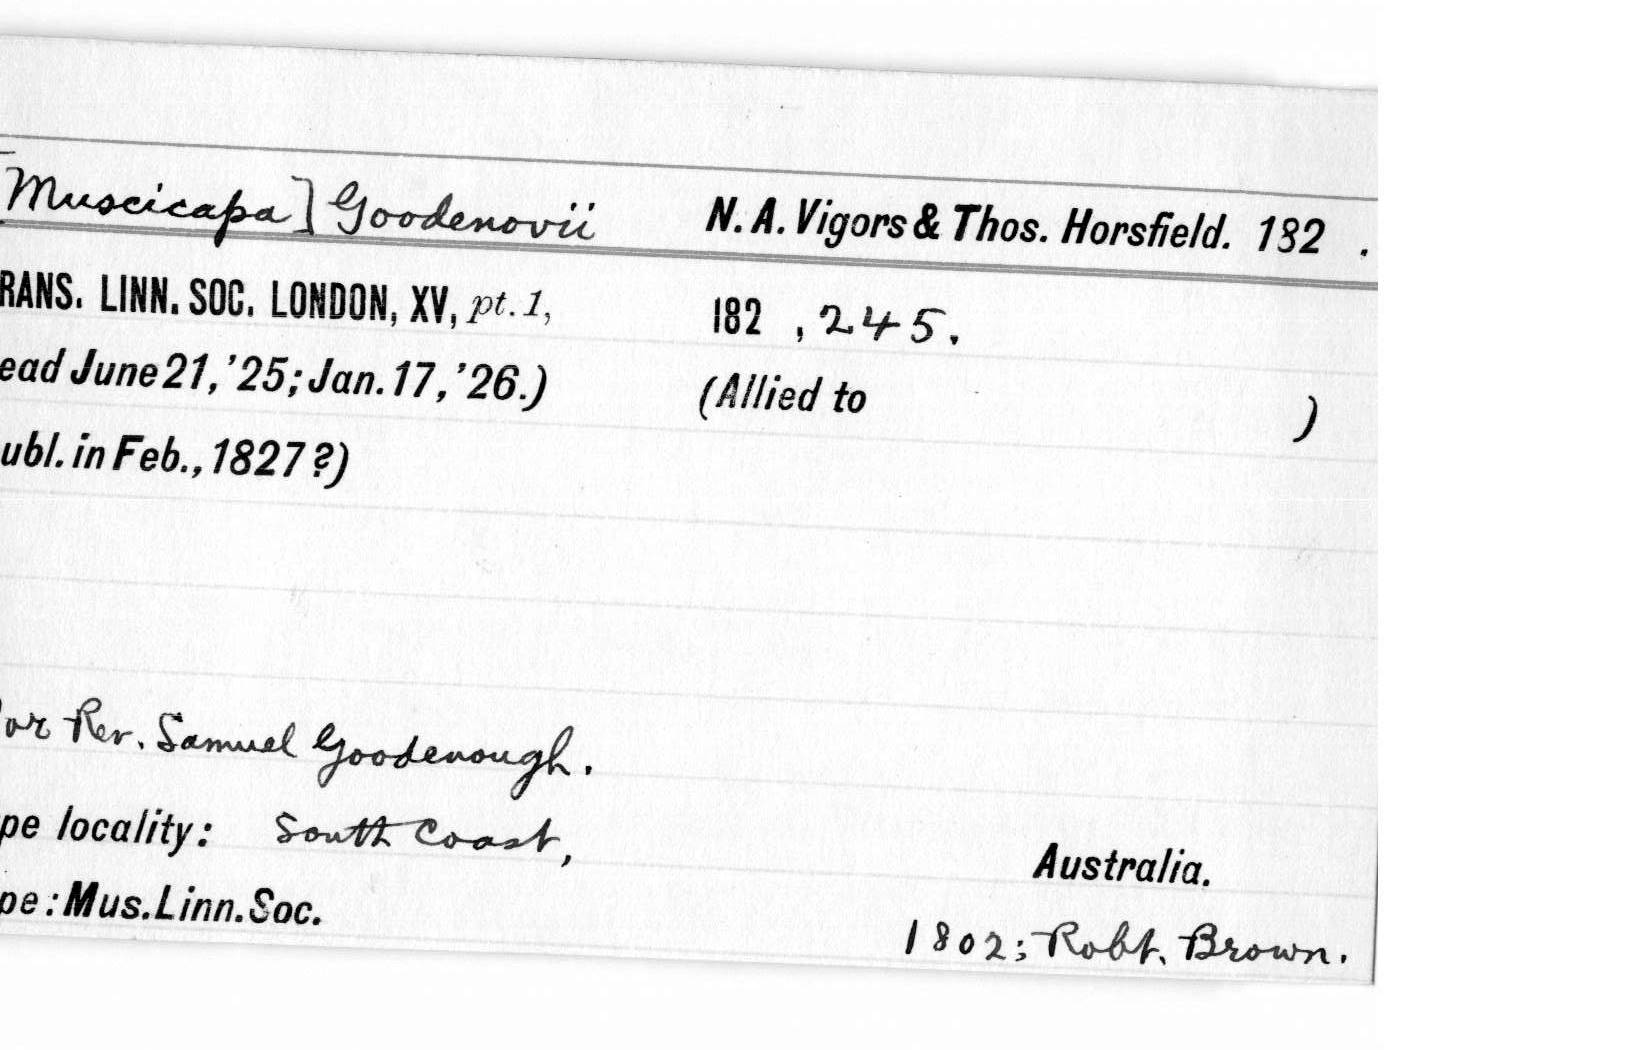 [Muscicapa] Goodenovii N. A. Vigors & Thos. Horsfield. 182 .
RANS. LINN. SOC. LONDON, XV, pt. 1, 182 , 245.
ead June 21, '25; Jan. 17, '26.) (Allied to )
ubl. in Feb., 1827 ?)
or Rev. Samuel Goodenough.
pe locality: South Coast, Australia.
pe: Mus. Linn. Soc. 1802; Robt. Brown.